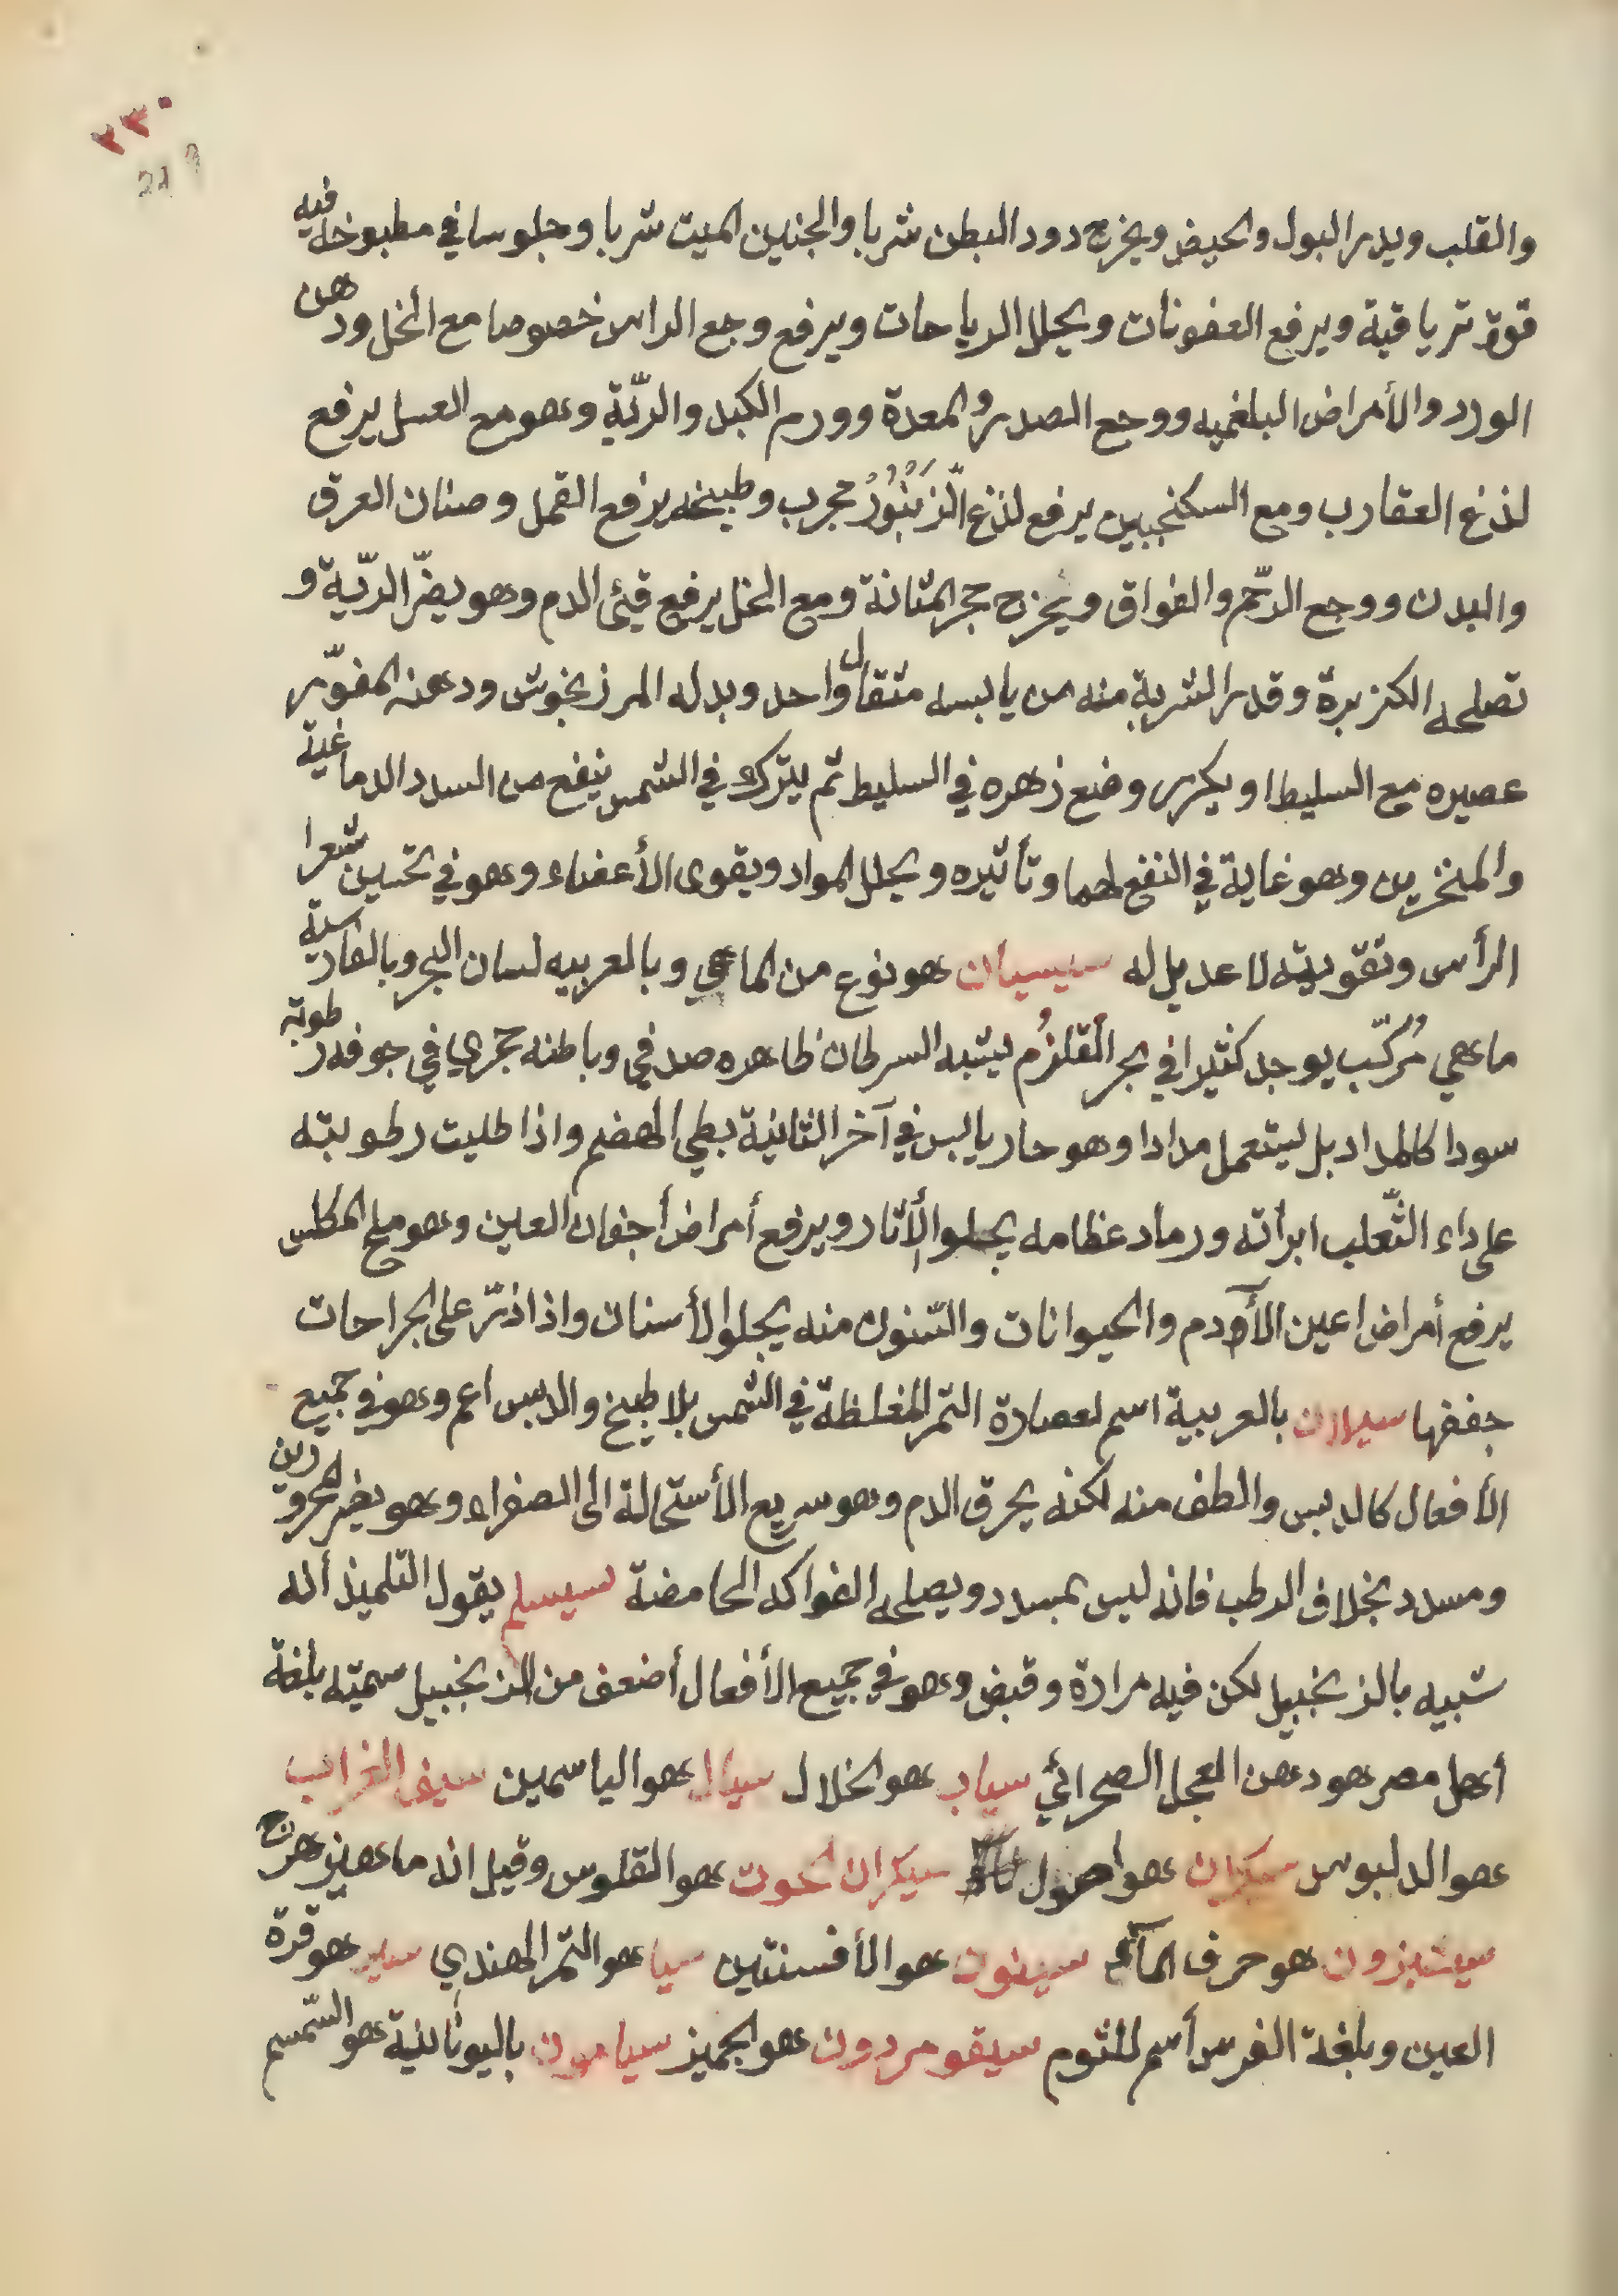 ٢٣٠
229
والقلب ويدر البول والحيض ويخرج دود البطن شربا والجنين الميت شربا وجلوسا في مطبوخه فيه
قوة ترياقية ويرفع العفونات ويحلل الرياحات ويرفع وجع الراس خصوصا مع الخل ودهن
الورد والأمراض البلغميه ووجع الصدر والمعدة وورم الكبد والريّة وهو مع العسل يرفع
لذغ العقارب ومع السكنجبين يرفع لذغ الزَّنْبُوْرُ مجرب وطبيخه يرفع القمل وصنان العرق
والبدن ووجع الرّحم والفواق ويخرج حجر المثانة ومع الخل يرفع قيئ الدم وهو يضرّ الريّة و
تصلحه الكزبرة وقدر الشربة منه من يابسه مثقال واحد وبدله المرزنجوش ودهنه المفوّر
عصيره مع السليط او يكرر وضع زهره في السليط ثم يترك في الشمس ينفع من السدد الدماغية
والمنخرين وهو غاية في النفع لهما وتأثيره ويحلل المواد ويقوى الأعضاء وهو في تحسين شعرا
الرأس وتقويته لا عديل له سيسيان هو نوع من الماهي وبالعربيه لسان البحر وبالفارسية
ماهي مُركّب يوجد كثيرا في بحر القلزُم يشبه السرطان ظاهره صدفي وباطنه حجري في جوفه رطوبة
سودا كالمداد بل يستعمل مدادا وهو حار يابس في آخر الثانية بطي الهضم واذا طليت رطوبته
على داء الثّعلب ابرأته ورماد عظامه يجلو الأثار ويرفع أمراض أجفان العين وهو مع المكلس
يرفع أمراض اعين الأودم والحيوانات والسّنون منه يجلو الأسنان واذا ذرّ على الجراحات
جففها سيلان بالعربية اسم لعصارة التمر المغلظة في الشمس بلا طبيخ والدبس اعم وهو في جميع
الأفعال كالدبس والطف منه لكنه يحرق الدم وهو سريع الأستحالة الى الصفراء وهو يضر المحرورين
ومسدد بخلاف الرطب فانه ليس بمسدد ويصلحه الفواكه الحامضة سيسلم يقول التلميذ أنه
شبيه بالزنجبيل لكن فيه مرارة وقبض وهو في جميع الأفعال أضعف من الزنجبيل سميته بلغة
أهل مصر هو دهن العجل الصحرائي سياب هو الخلال سيال هو الياسمين سيف الغراب
هو الدلبوس سيكران هو اصول سيكران الحوت هو القلوس وقيل انه ماهيزهرج
سيشبزون هو حرف المآء سينون هو الأفسنتين سيا هو التمر الهندي سير هو قرة
العين وبلغة الفرس أسم للثوم سيقومردون هو الجميز سيامون باليونانية هو السّمسم